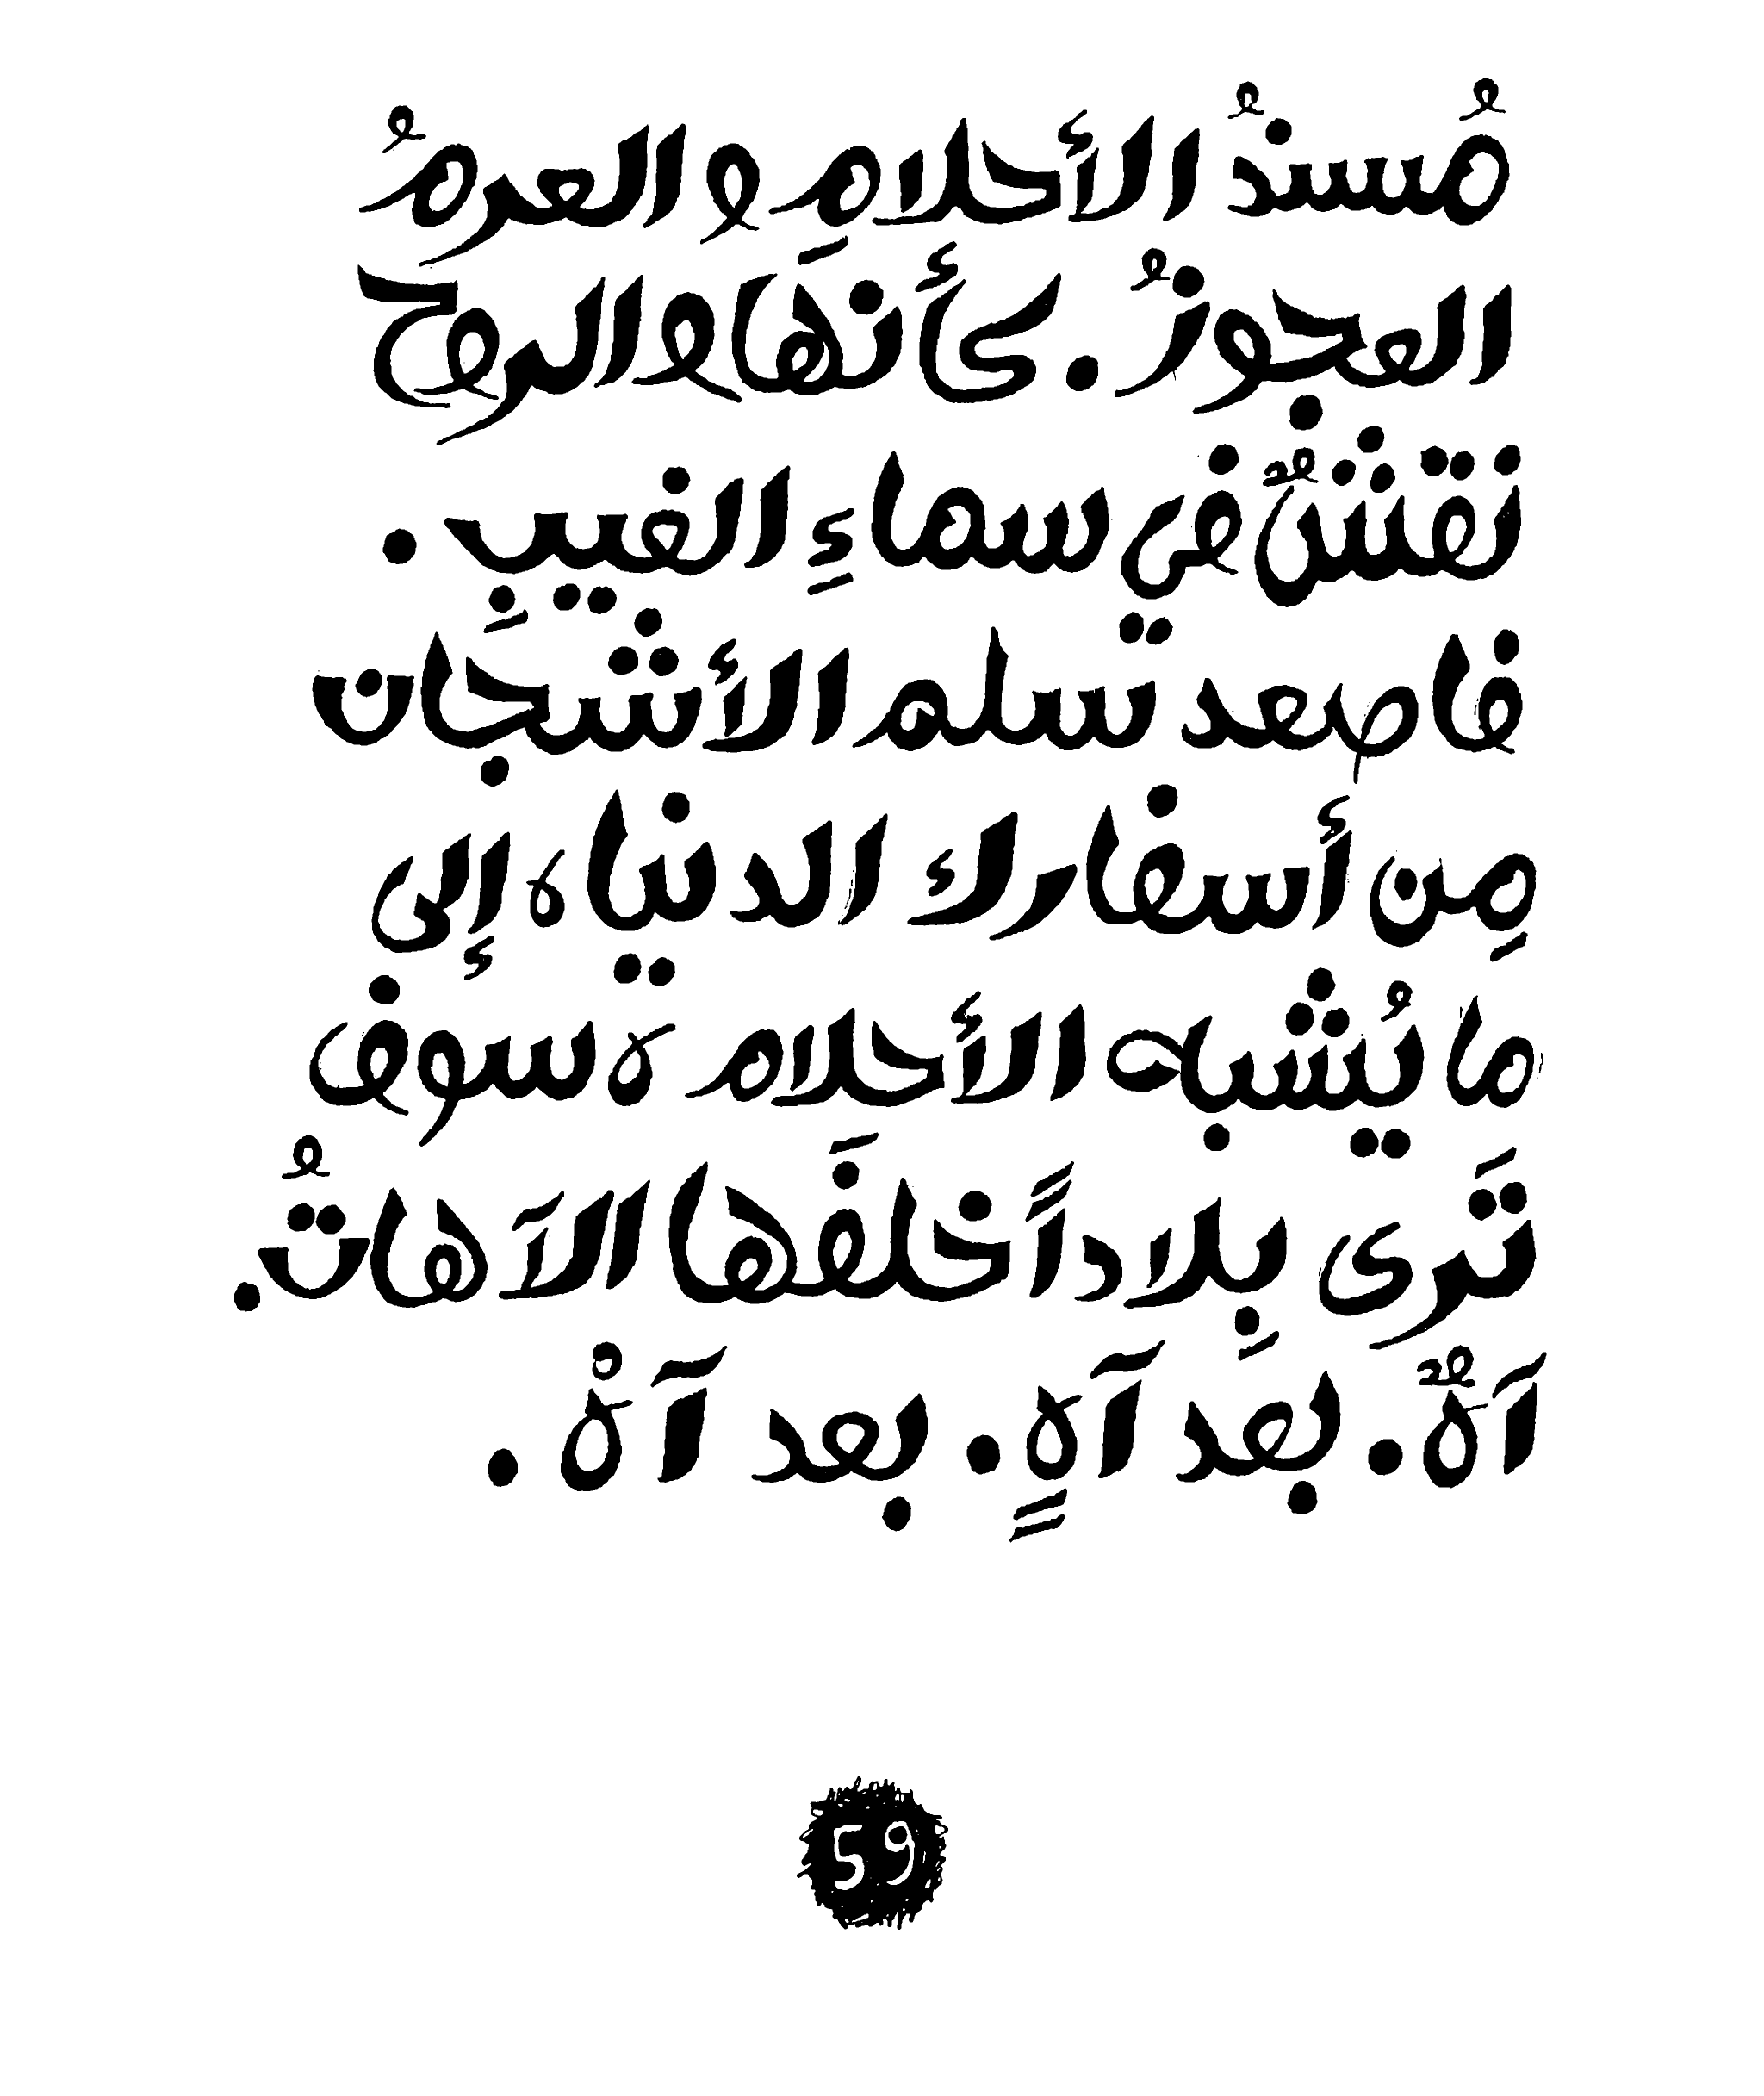 مُسندُ الأحلامِ و العرمُ
العجوزُ . كأنها و الروح
نقشٌ في سماءِ الغيبِ .
فاصعد سلم الأشجان
مِن أسفارك الدنيا ، إلى
ما يُشبه الأحلام ، سوف
تَرى بِلاداً خلفَها الآهاتُ .
آهٌ . بعد آهٍ . بعد آهْ .
59